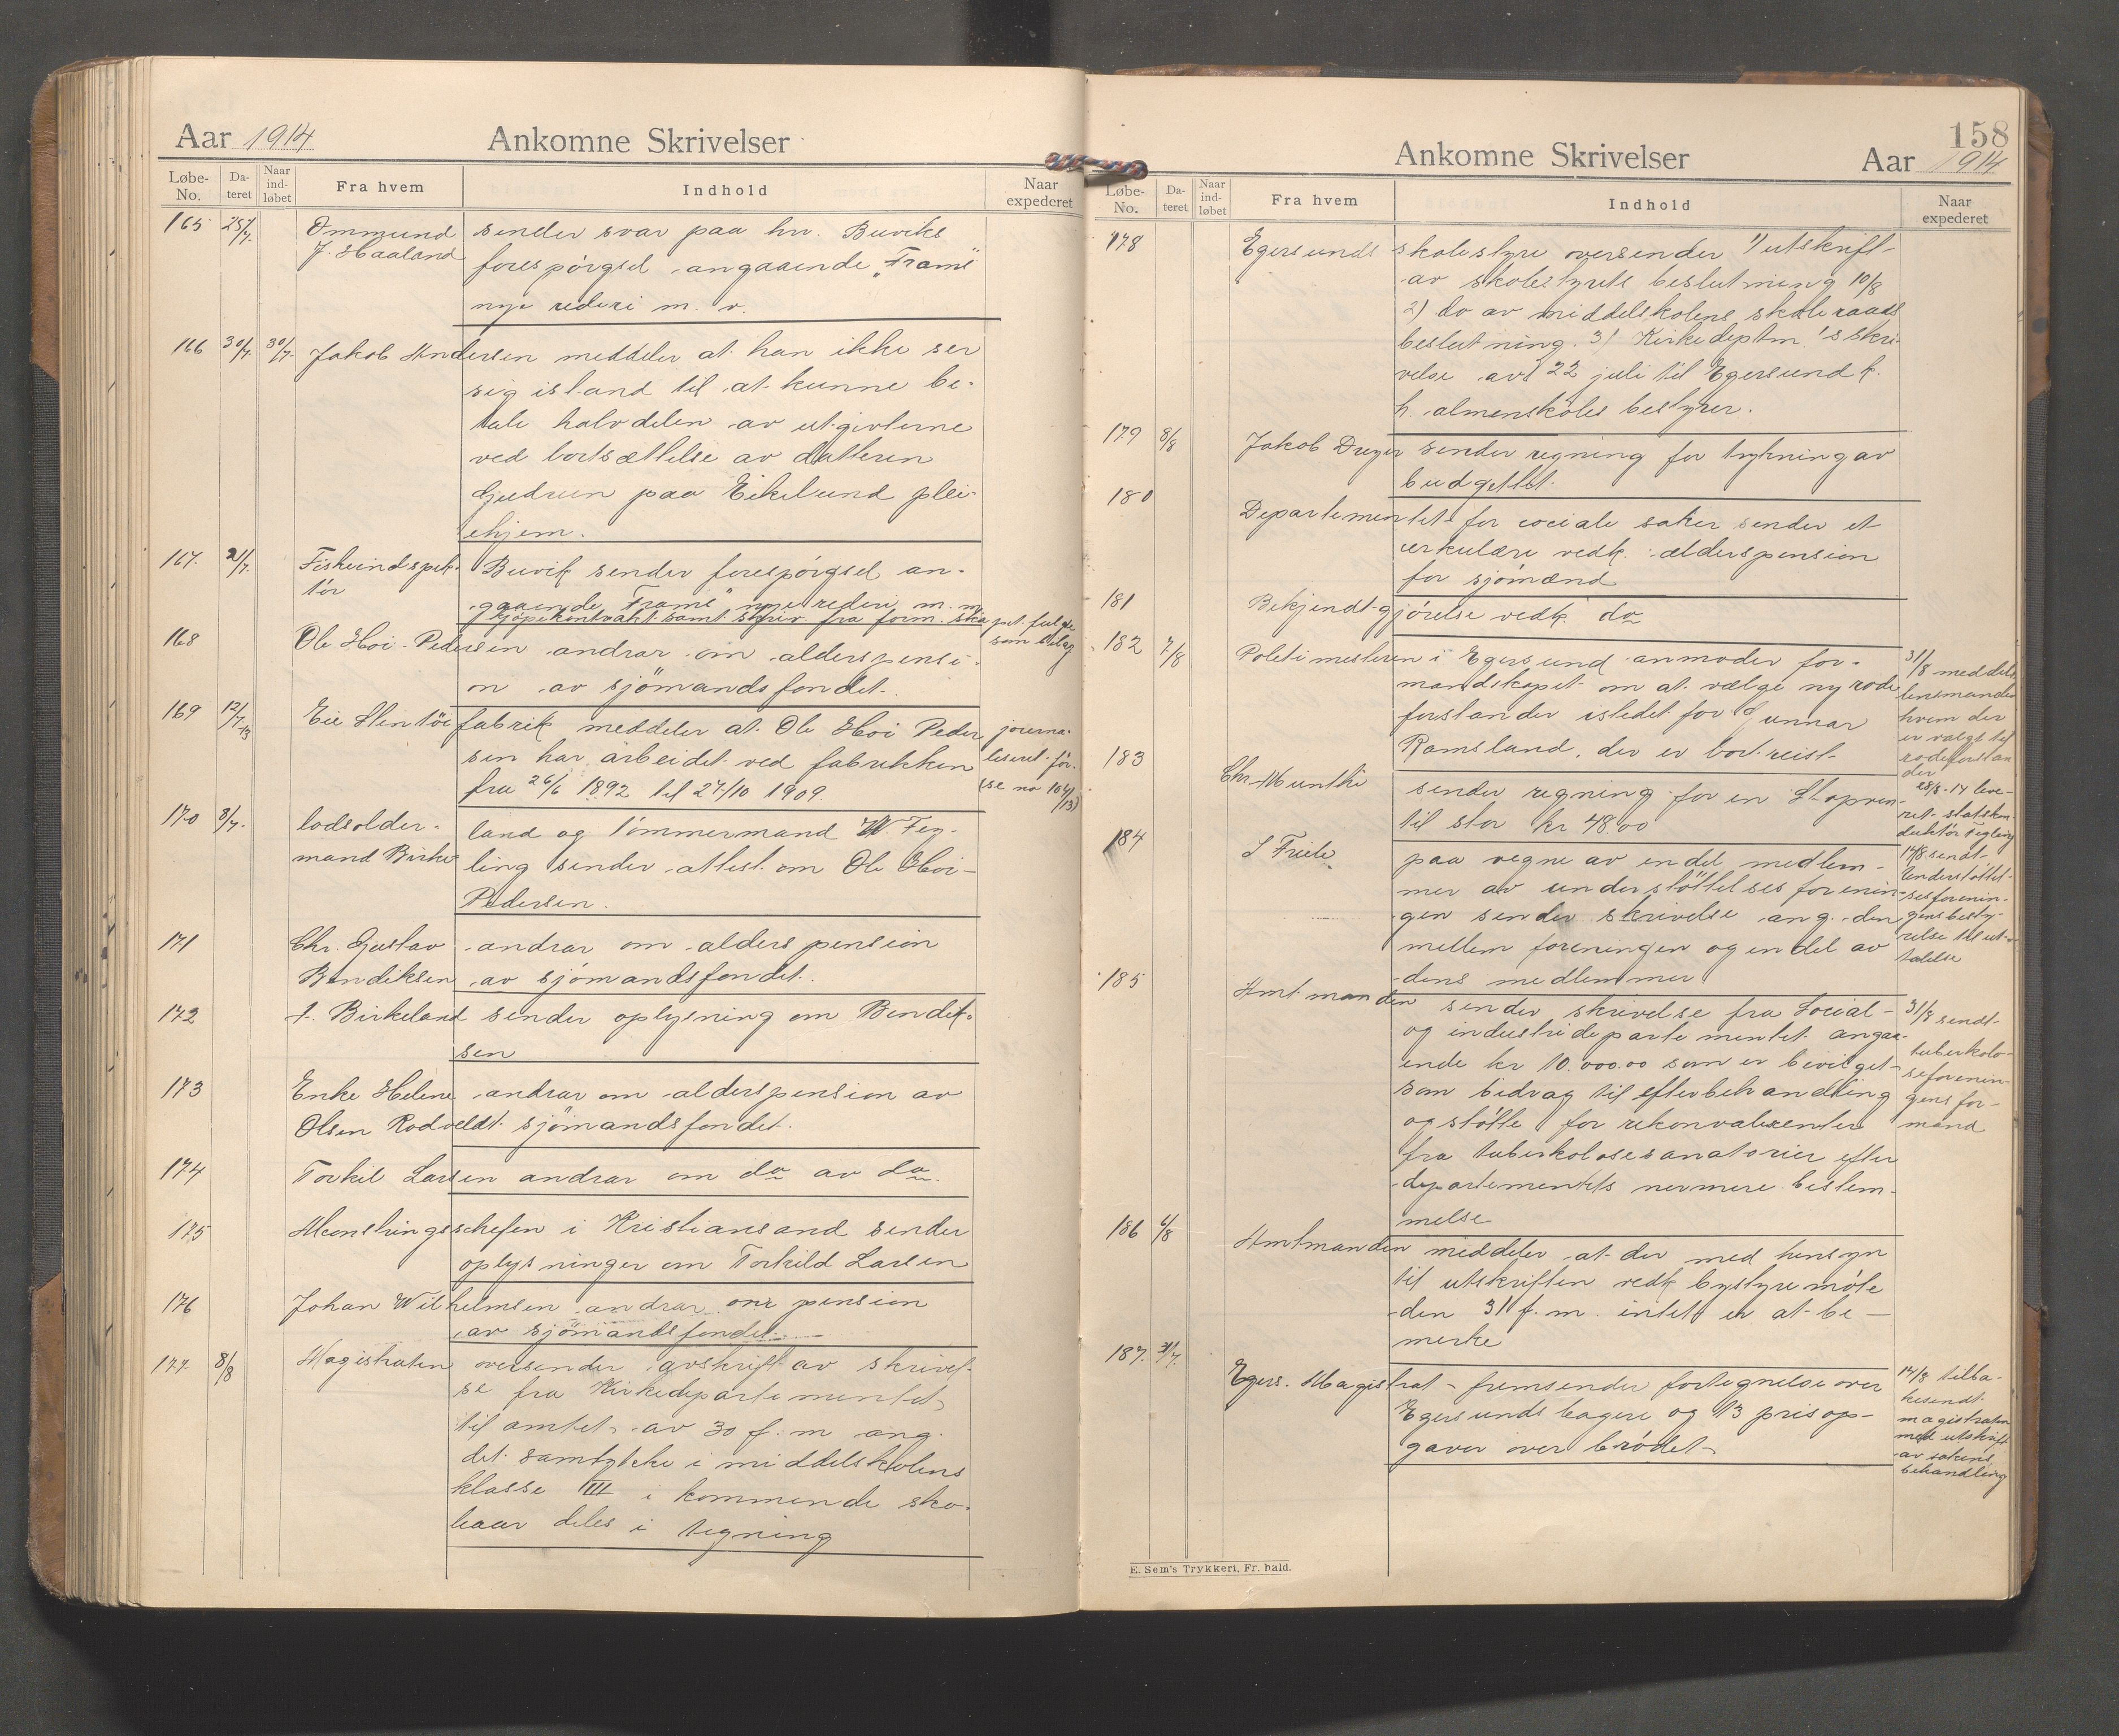 Aar 1914
Ankomne Skrivelser
Løbe-No. Da-teret Naar ind-løbet Fra hvem Indhold Naar expederet
165 25/7. Ommund sender svar paa hr. Buviks
J. Haaland forespørgsel angaaende „Frams"
nye rederi m. v.
166 30/7. 30/7. Jakob Andersen meddeler at han ikke ser
sig istand til at kunne be-
tale halvdelen av utgivterne
ved bortsættelse av datteren
Gudrun paa Eikelund plei-
ehjem.
167. 2/7. Fiskeindspek- Buvik sender forespørgsel an-
tör gaaende „Frams" nye rederi m. m
kjøpekontrakt samt skriv. fra form. skapet fulgte
som bilag
168 Ole Hoi-Pedersen andrar om alderspensi-
on av sjömandsfondet.
169 12/7-13 Eie Stentöifabrik meddeler at Ole Hoi Peder journa-
sen har arbeidet ved fabrikken liseret för.
fra 26/6 1892 til 27/10 1909. (se no 104/13)
170 8/7. lodsolder- land og Tömmermand W. Feg-
mand Birke ling sender attest om Ole Hoi-
Pedersen.
171 Chr. Gustav andrar om alderspension
Bendiksen av sjömandsfondet.
172 T. Birkeland sender oplysning om Bendik-
sen
173 Enke Helene andrar om alderspension av
Olsen Rodveldt sjömandsfondet.
174 Torkil Larsen andrar om do av do.
175 Mönstringsschefen i Kristiansand sender
oplysninger om Torkild Larsen
176 Johan Wilhelmsen andrar om pension
av sjömandsfondet.
177. 8/8 Magistraten oversender avskrift av skrivel-
se fra Kirkedepartementet
til amtet av 30 f. m ang.
det samtykke i middelskolens
klasse III i kommende sko-
leaar deles i tegning
158
Ankomne Skrivelser
Aar 1914
Løbe-No. Da-teret Naar ind-løbet Fra hvem Indhold Naar expederet
178 Egersunds skolestyre oversender 1/ utskrift
av skolestyrets beslutning 10/8
2) do av middelskolens skoleraads
beslutning. 3) Kirkedeptm.'s skri-
velse av 22 juli til Egersund k.
h. almenskoles bestyrer.
179 8/8 Jakob Dreyer sender regning for trykning av
budgettet.
180 Departementet for sociale saker sender et
cirkulære vedk. alderspension
for sjömænd
181 Bekjendtgjörelse vedk do
182 7/8 Politimesteren i Egersund anmoder for- 31/8 meddelt
mandskapet om at vælge ny rode lensmanden
forstander istedet for Gunnar hvem der
Ramsland, der er bortreist er valgt til
rodeforstan
der
183 Chr. Munthe sender regning for en Stopren- 28/8-14 leve-
til stor kr 48.00 ret statskon
duktör Fegling
184 S Friele paa vegne av endel medlem- 14/8 sendt
mer av understöttelsesforenin- Understöttel-
gen sender skrivelse ang. den sesforenin-
mellem foreningen og en del av gens besty-
dens medlemmer relse til ut-
talelse
185 Amtmanden sender skrivelse fra Social- 31/8 sendt
og industridepartementet angaa- tuberkulo-
ende kr 10.000.00 som er bevilget seforenin-
som bidrag til efterbehandling gens for-
og stötte for rekonvalesenter mand
fra tuberkolosesanatorier efter
departementets nermere bestem-
melse
186 6/8 Amtmanden meddeler at der med hensyn
til utskriften vedk bystyremöte
den 31 f. m. intet er at be-
merke
187. 31/7. Egers. Magistrat fremsender fortegnelse over 14/8 tilba-
Egersunds bagere og 13 prisop- kesendt
gaver over brödet magistraten
med utskrift
av sakens
behandling
E. Sem's Trykkeri, Fr.hald.